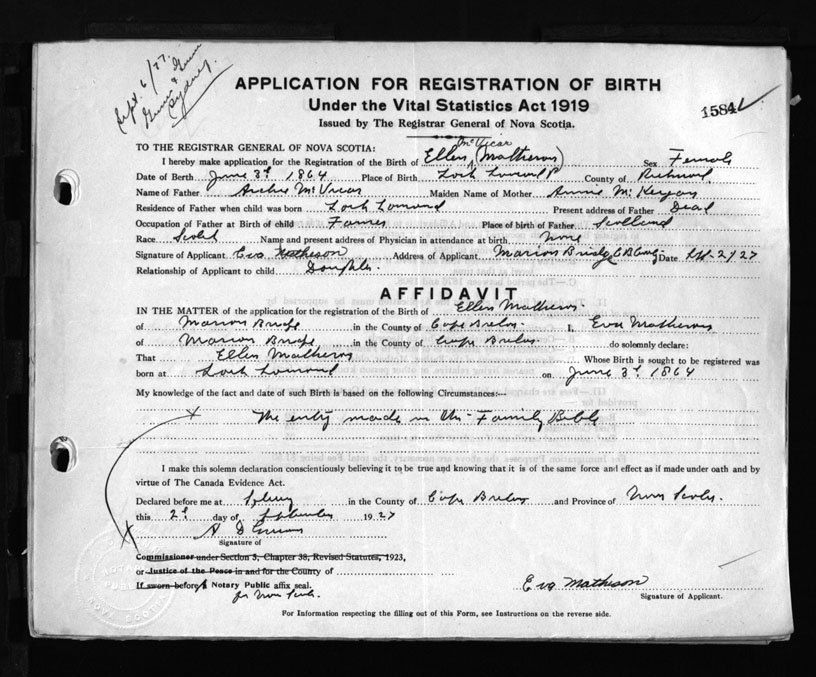 Sept. 6/27.
Sydney.
APPLICATION FOR REGISTRATION OF BIRTH
1584
Under the Vital Statistics Act 1919
Issued by The Registrar General of Nova Scotia.
TO THE REGISTRAR GENERAL OF NOVA SCOTIA:
McVicar
I hereby make application for the Registration of the Birth of Ellen (Matheson) Sex Female
Date of Birth June 3d 1864 Place of Birth Loch Lomond County of Richmond
Name of Father Archie McVicar Maiden Name of Mother Annie McKeigan
Residence of Father when child was born Loch Lomond Present address of Father Dead
Occupation of Father at Birth of child Farmer Place of birth of Father Scotland
Race Scotch Name and present address of Physician in attendance at birth None
Signature of Applicant Eva Matheson Address of Applicant Marion Bridge C B Date Sept. 2/27
Relationship of Applicant to child Daughter
AFFIDAVIT
IN THE MATTER of the application for the registration of the Birth of Ellen Matheson
of Marion Bridge in the County of Cape Breton I, Eva Matheson
of Marion Bridge in the County of Cape Breton do solemnly declare:
That Ellen Matheson Whose Birth is sought to be registered was
born at Loch Lomond on June 3d, 1864
My knowledge of the fact and date of such Birth is based on the following Circumstances:—
The entry made in the Family Bible
I make this solemn declaration conscientiously believing it to be true and knowing that it is of the same force and effect as if made under oath and by
virtue of The Canada Evidence Act.
Declared before me at Sydney in the County of Cape Breton and Province of Nova Scotia.
this 2d day of September 1927
Signature of
Commissioner under Section 3, Chapter 38, Revised Statutes, 1923,
or Justice of the Peace in and for the County of
If sworn before A Notary Public affix seal.
for Nova Scotia
Eva Matheson
Signature of Applicant.
For Information respecting the filling out of this Form, see Instructions on the reverse side.